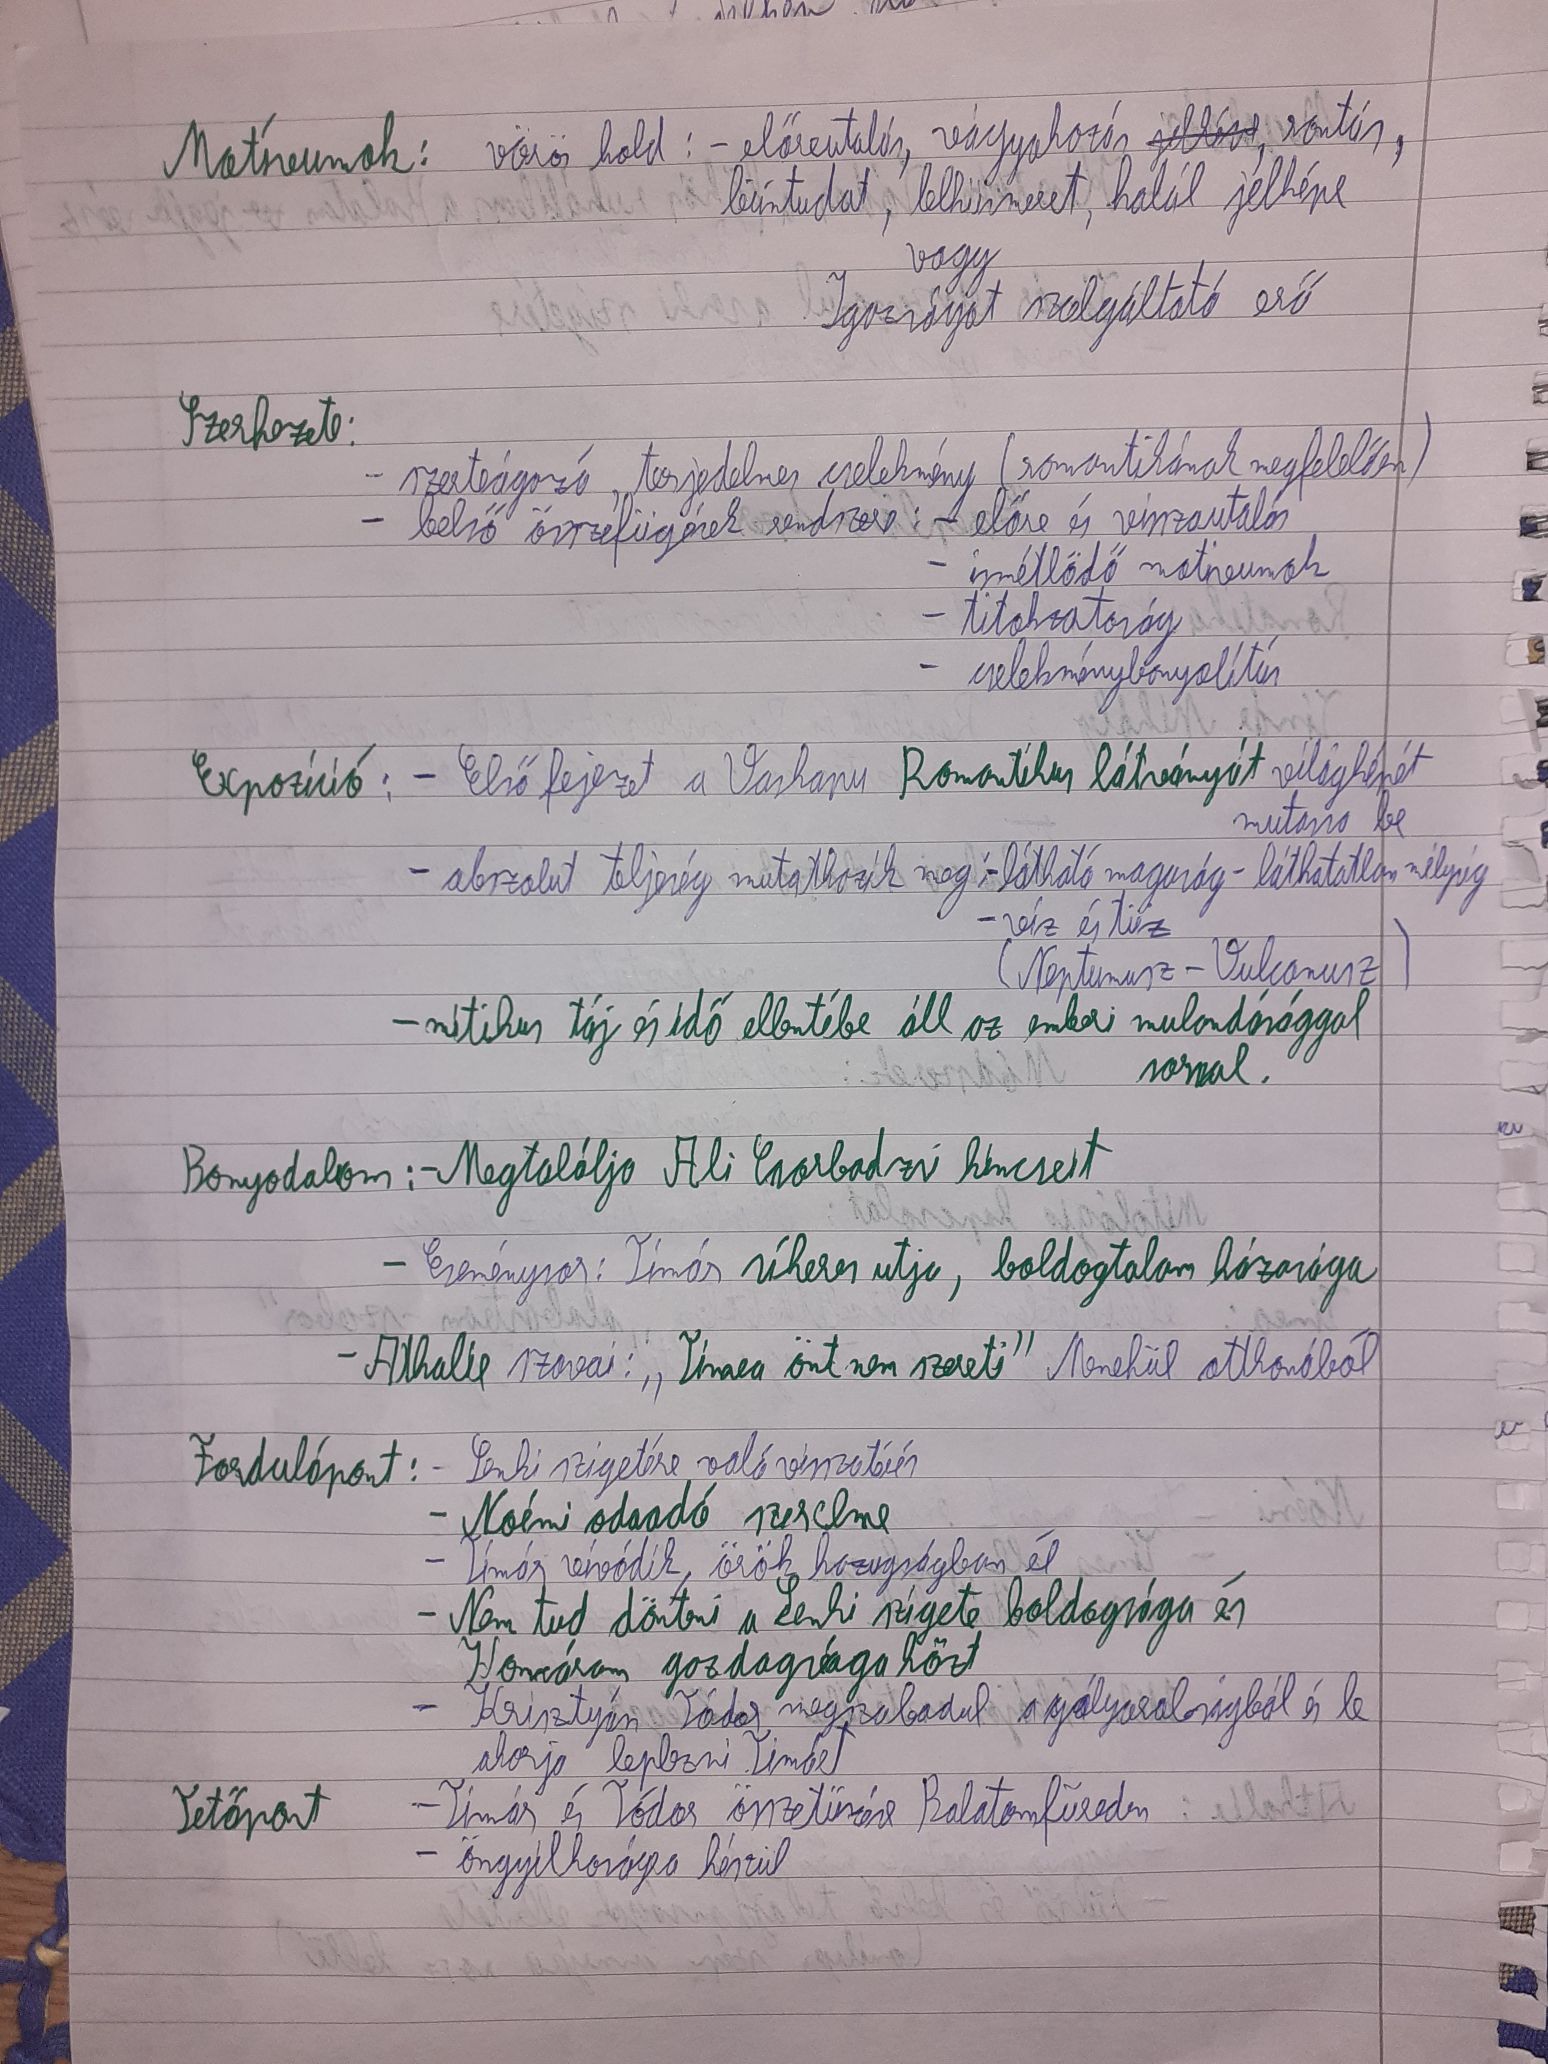 Motívumok: vörös hold: - előreutalás, vágyakozás jelképe, rontás,
bűntudat, lelkiismeret, halál jelképe
vagy
Igazságot szolgáltató erő
Szerkezete:
- szerteágazó, terjedelmes cselekmény (romantikának megfelelően)
- belső összefügések rendszere: - előre és visszautalás
- ismétlődő motívumok
- titokzatoság
- cselekménybonyolítás
Expozíció: - Első fejezet a Vaskapu Romantikus látványát világképét
mutassa be
- abszolut teljeség mutatkozik meg: - látható magaság - láthatatlan mélység
- víz és tűz
(Neptunusz - Vulcanusz)
- mitikus táj és idő ellentébe áll az emberi mulandósággal
sorssal.
Bonyodalom: - Megtalálja Ali Csorbadzsi kincseit
- Eseménysor: Tímár sikeres utja, boldogtalan házasága
- Athalie szavai: „Tímea önt nem szereti" Menekül otthonából
Fordulópont: - Senki szigetére való visszatérés
- Noémi odaadó szerelme
- Tímár vívódik, örök hazugságban él
- Nem tud dönteni a Senki szigete boldogsága és
Komárom gazdagsága közt
- Krisztyán Tódor megszabadul a gályarabságból és le
akarja leplezni Timárt
Tetőpont - Tímár és Tódor összetűzése Balatonfüreden
- öngyilkoságra készül